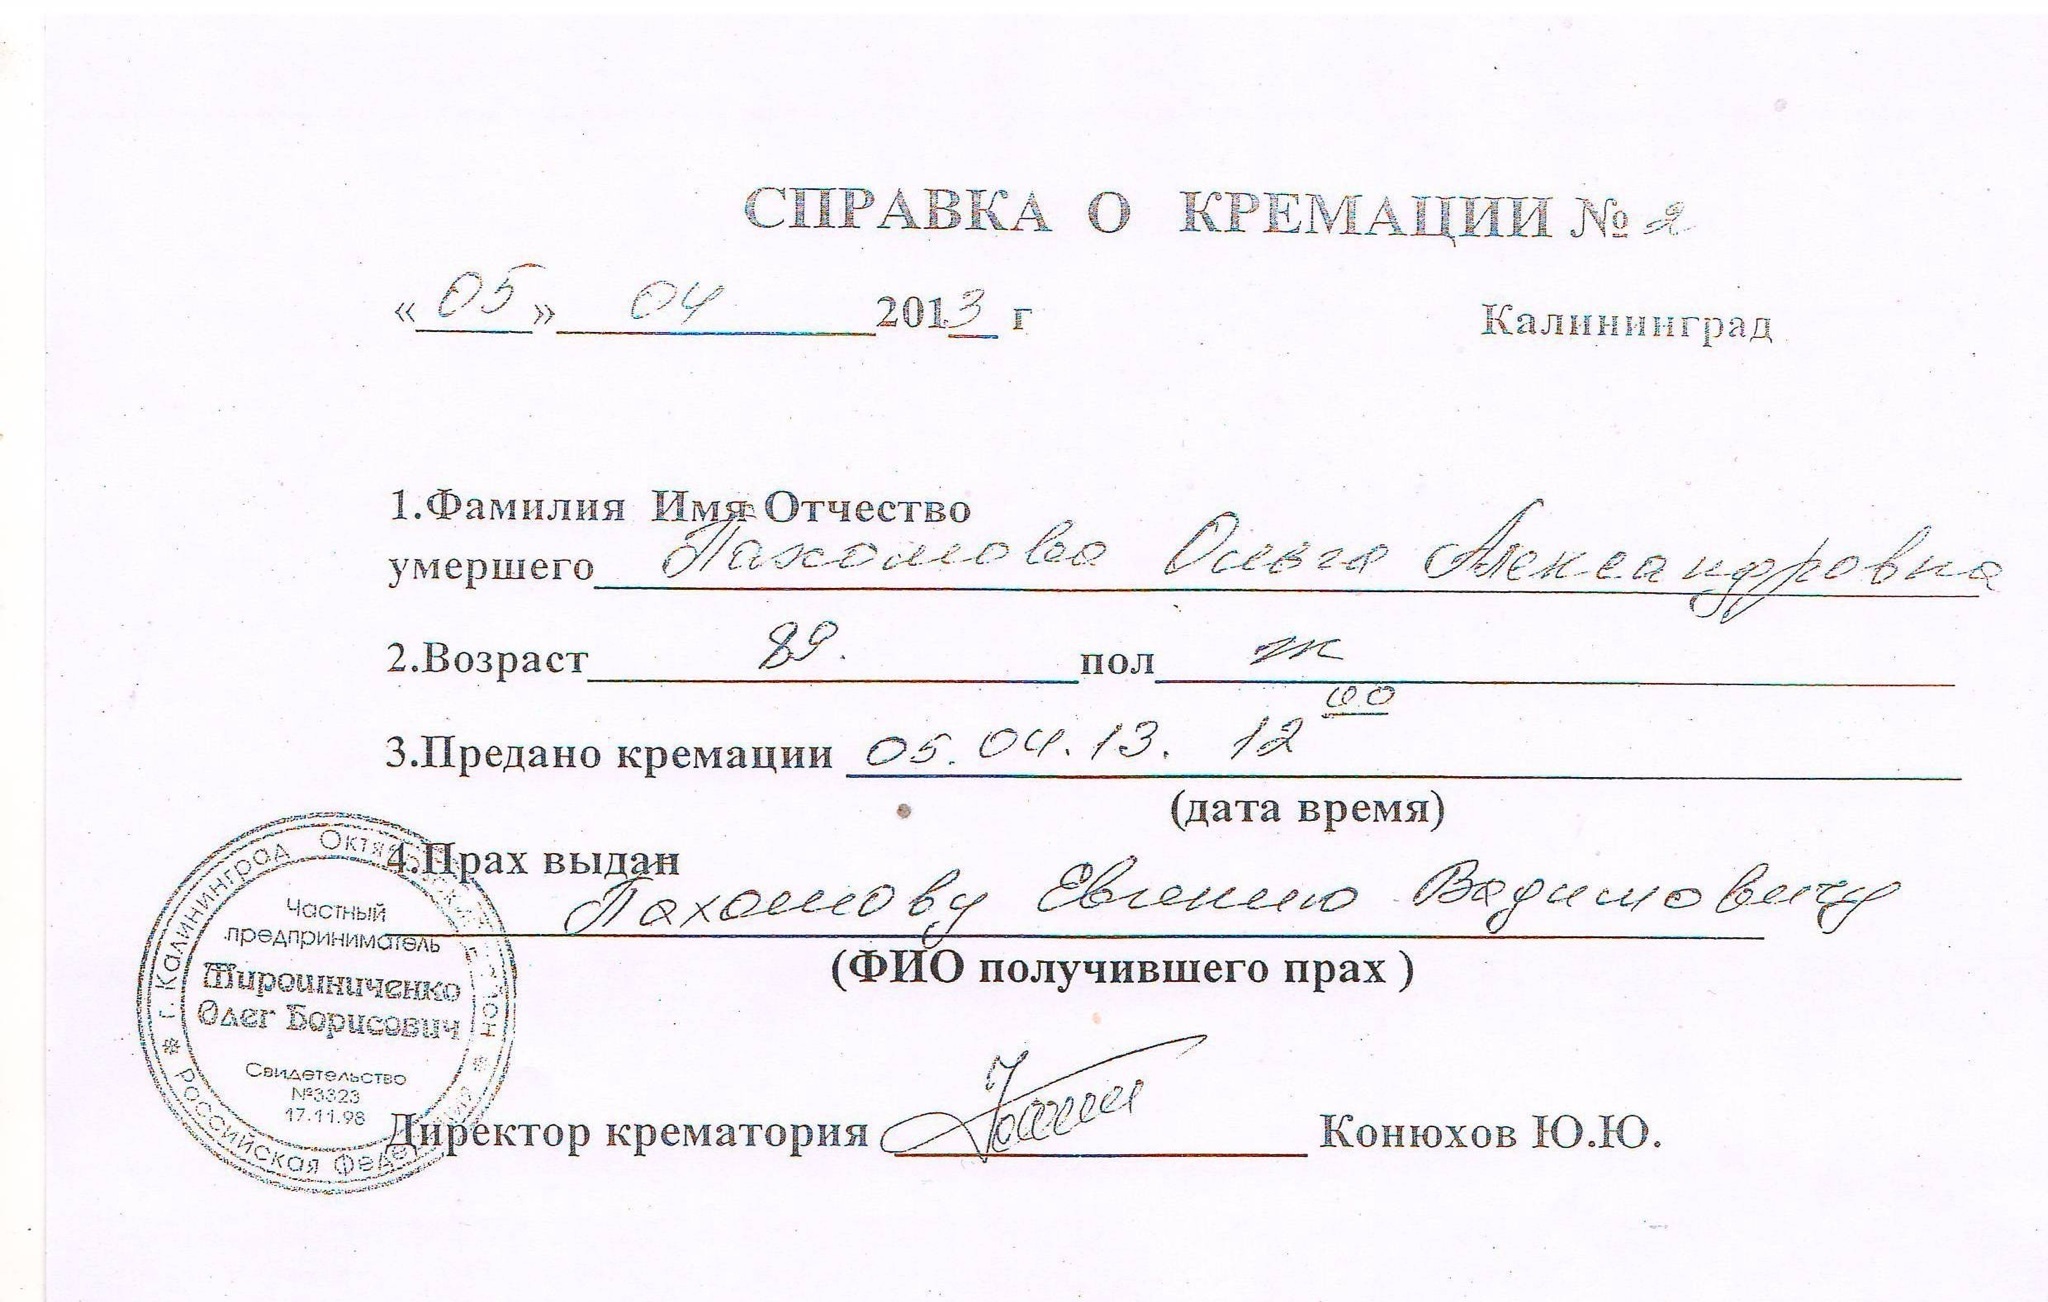 СПРАВКА О КРЕМАЦИИ № 2
«05» 04 2013 г Калининград
1.Фамилия Имя Отчество
умершего Пахомова Ольга Александровна
2.Возраст 89. пол ж
3.Предано кремации 05.04.13. 12 00
(дата время)
4.Прах выдан
Пахомову Евгению Вадимовичу
(ФИО получившего прах )
Директор крематория Конюхов Ю.Ю.
г. Калининград Октябрьский район
Российская Федерация
Частный
предприниматель
Мирошниченко
Олег Борисович
Свидетельство
№3323
17.11.98